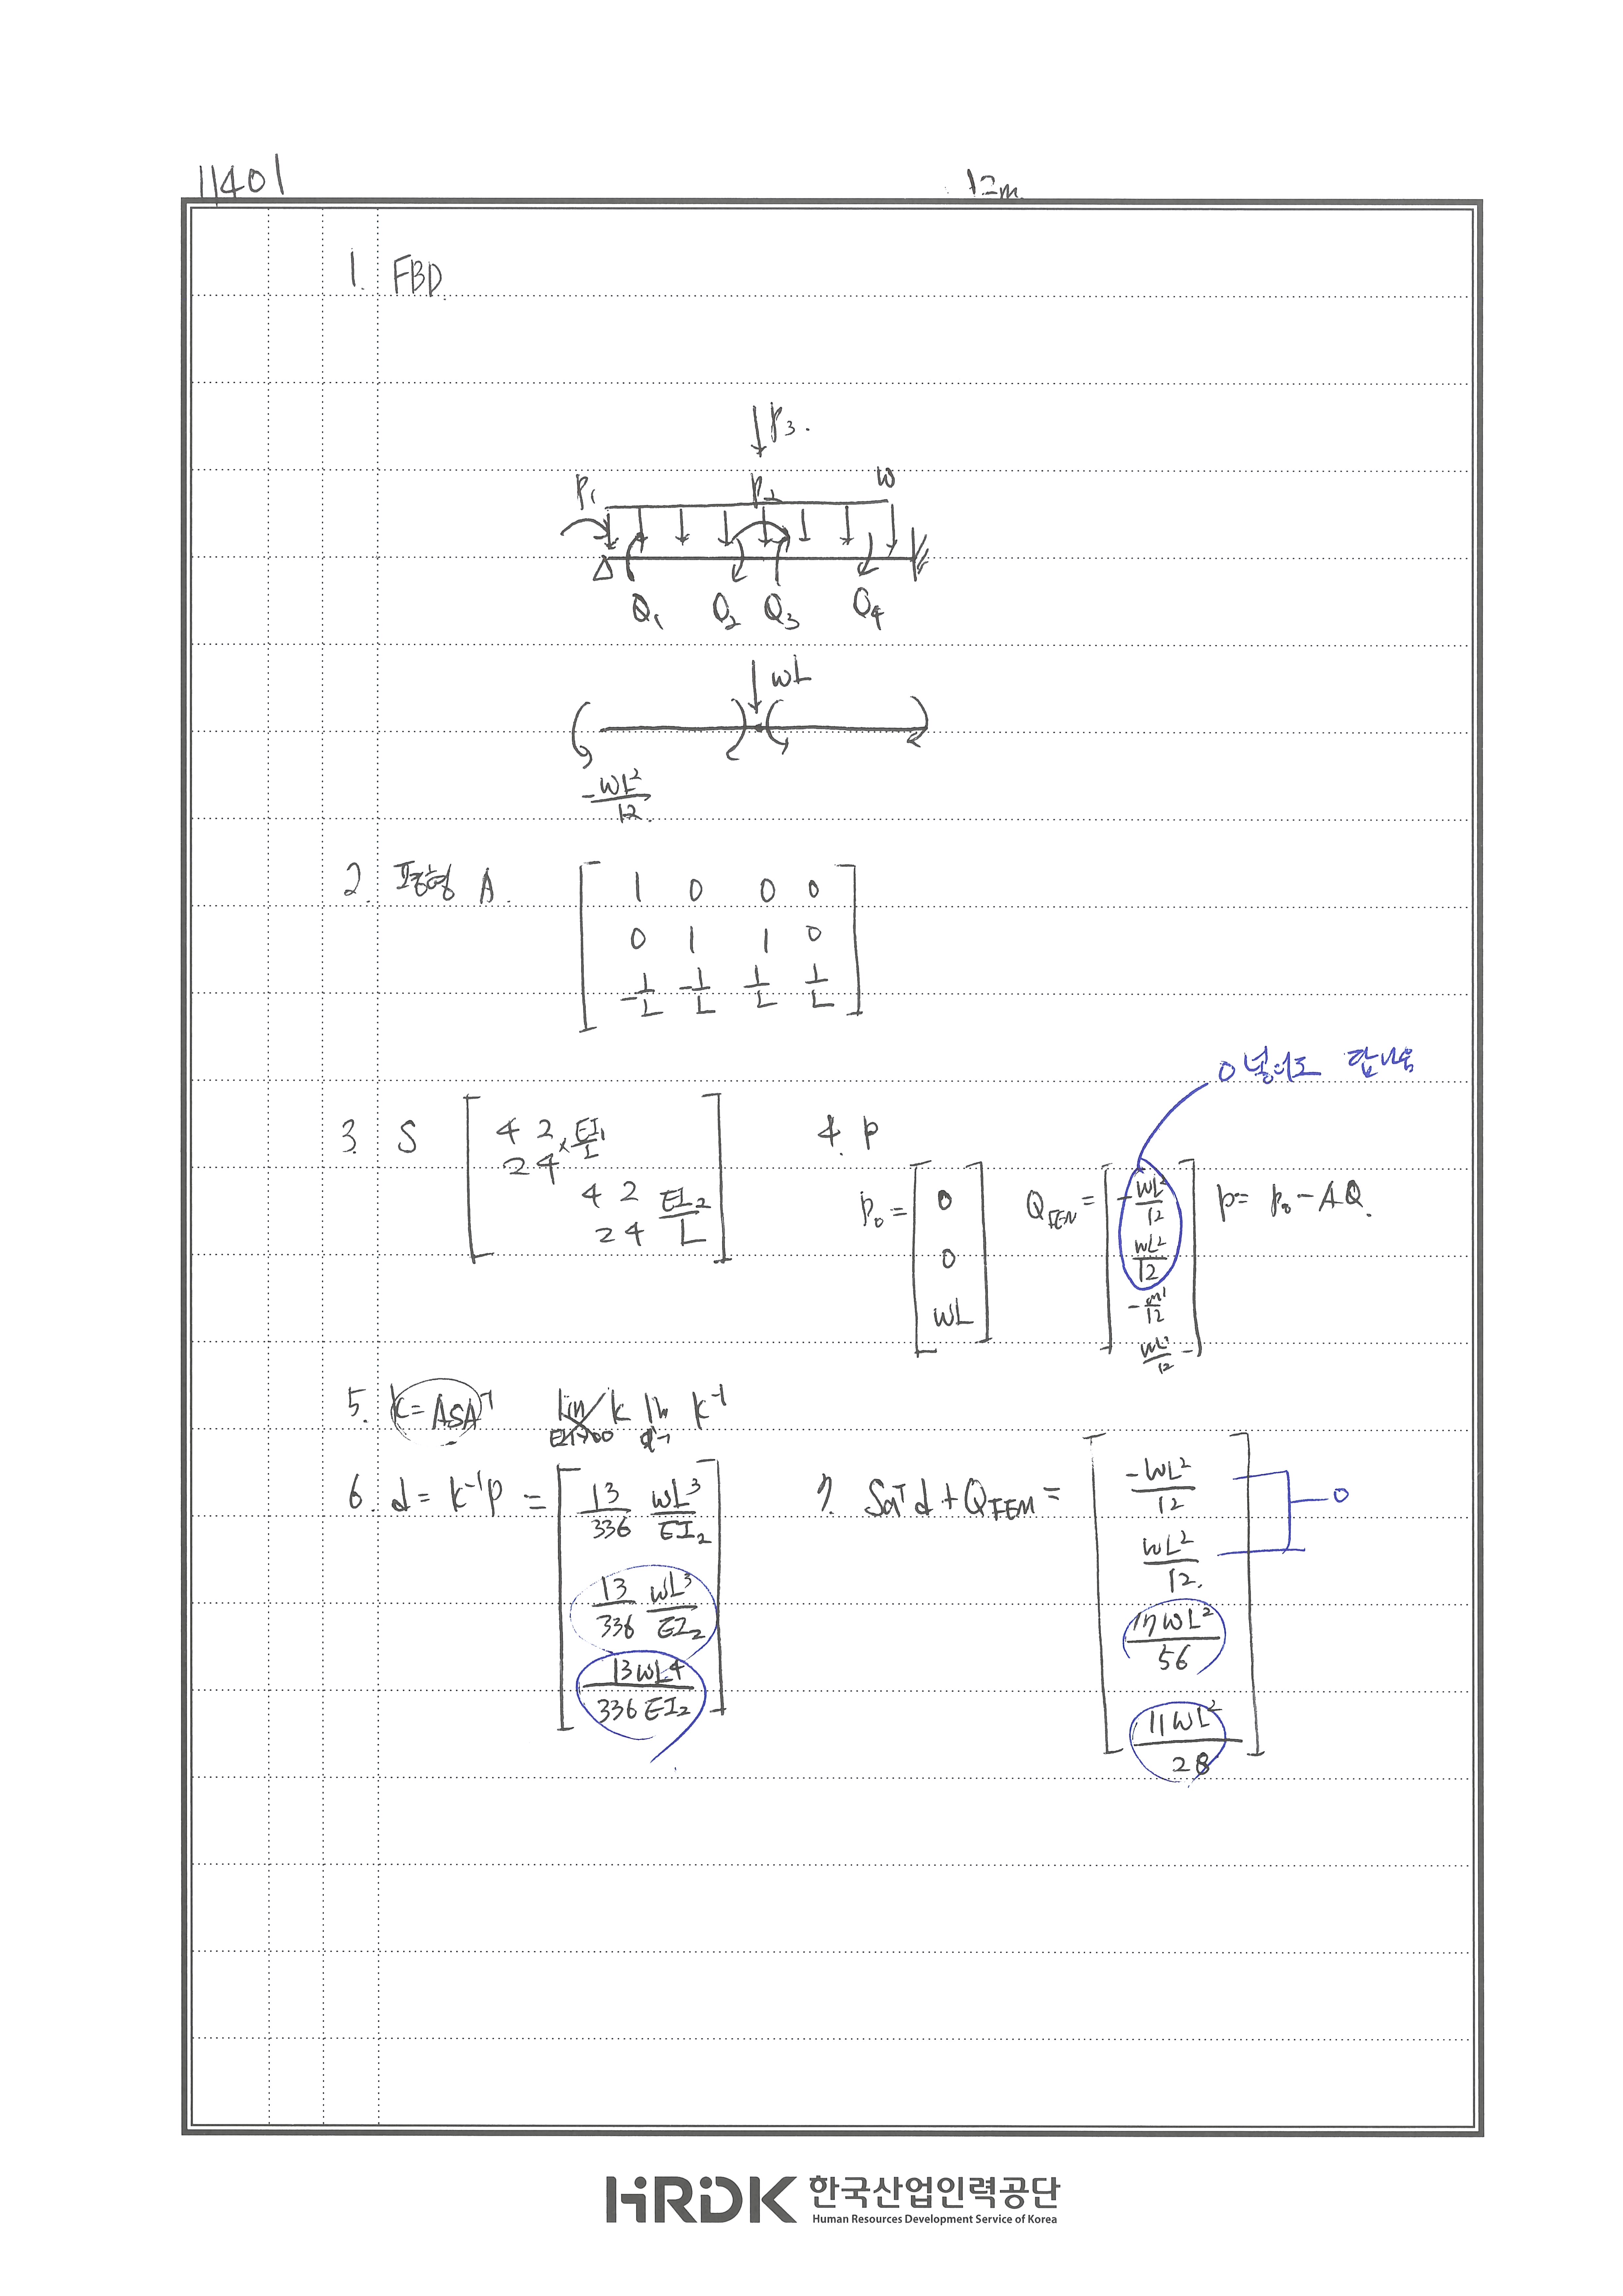 11401
12m
1. FBD
↓P3.
P1 P2 W
Q1 Q2 Q3 Q4
↓ wL
-wL²/12.
2. 평형 A. [ 1 0 0 0
0 1 1 0
-1/L -1/L 1/L 1/L ]
0 넣어도 답나옴
3. S [ 4 2 × EI1/L
2 4
4 2 EI2/L
2 4 ]
4. P
P0 = [ 0 0 wL ] QFEM = [ -wL²/12 wL²/12 -wL²/12 wL²/12 ] P = P0 - AQ.
5. K = ASAT lim K lim K⁻¹
EI→∞
6. d = K⁻¹P = [ 13/336 wL³/EI2
13/336 wL³/EI2
13wL⁴/336EI2 ]
7. SATd + QFEM = [ -wL²/12
wL²/12.
17wL²/56
11wL²/28 ]
0
HRDK 한국산업인력공단
Human Resources Development Service of Korea